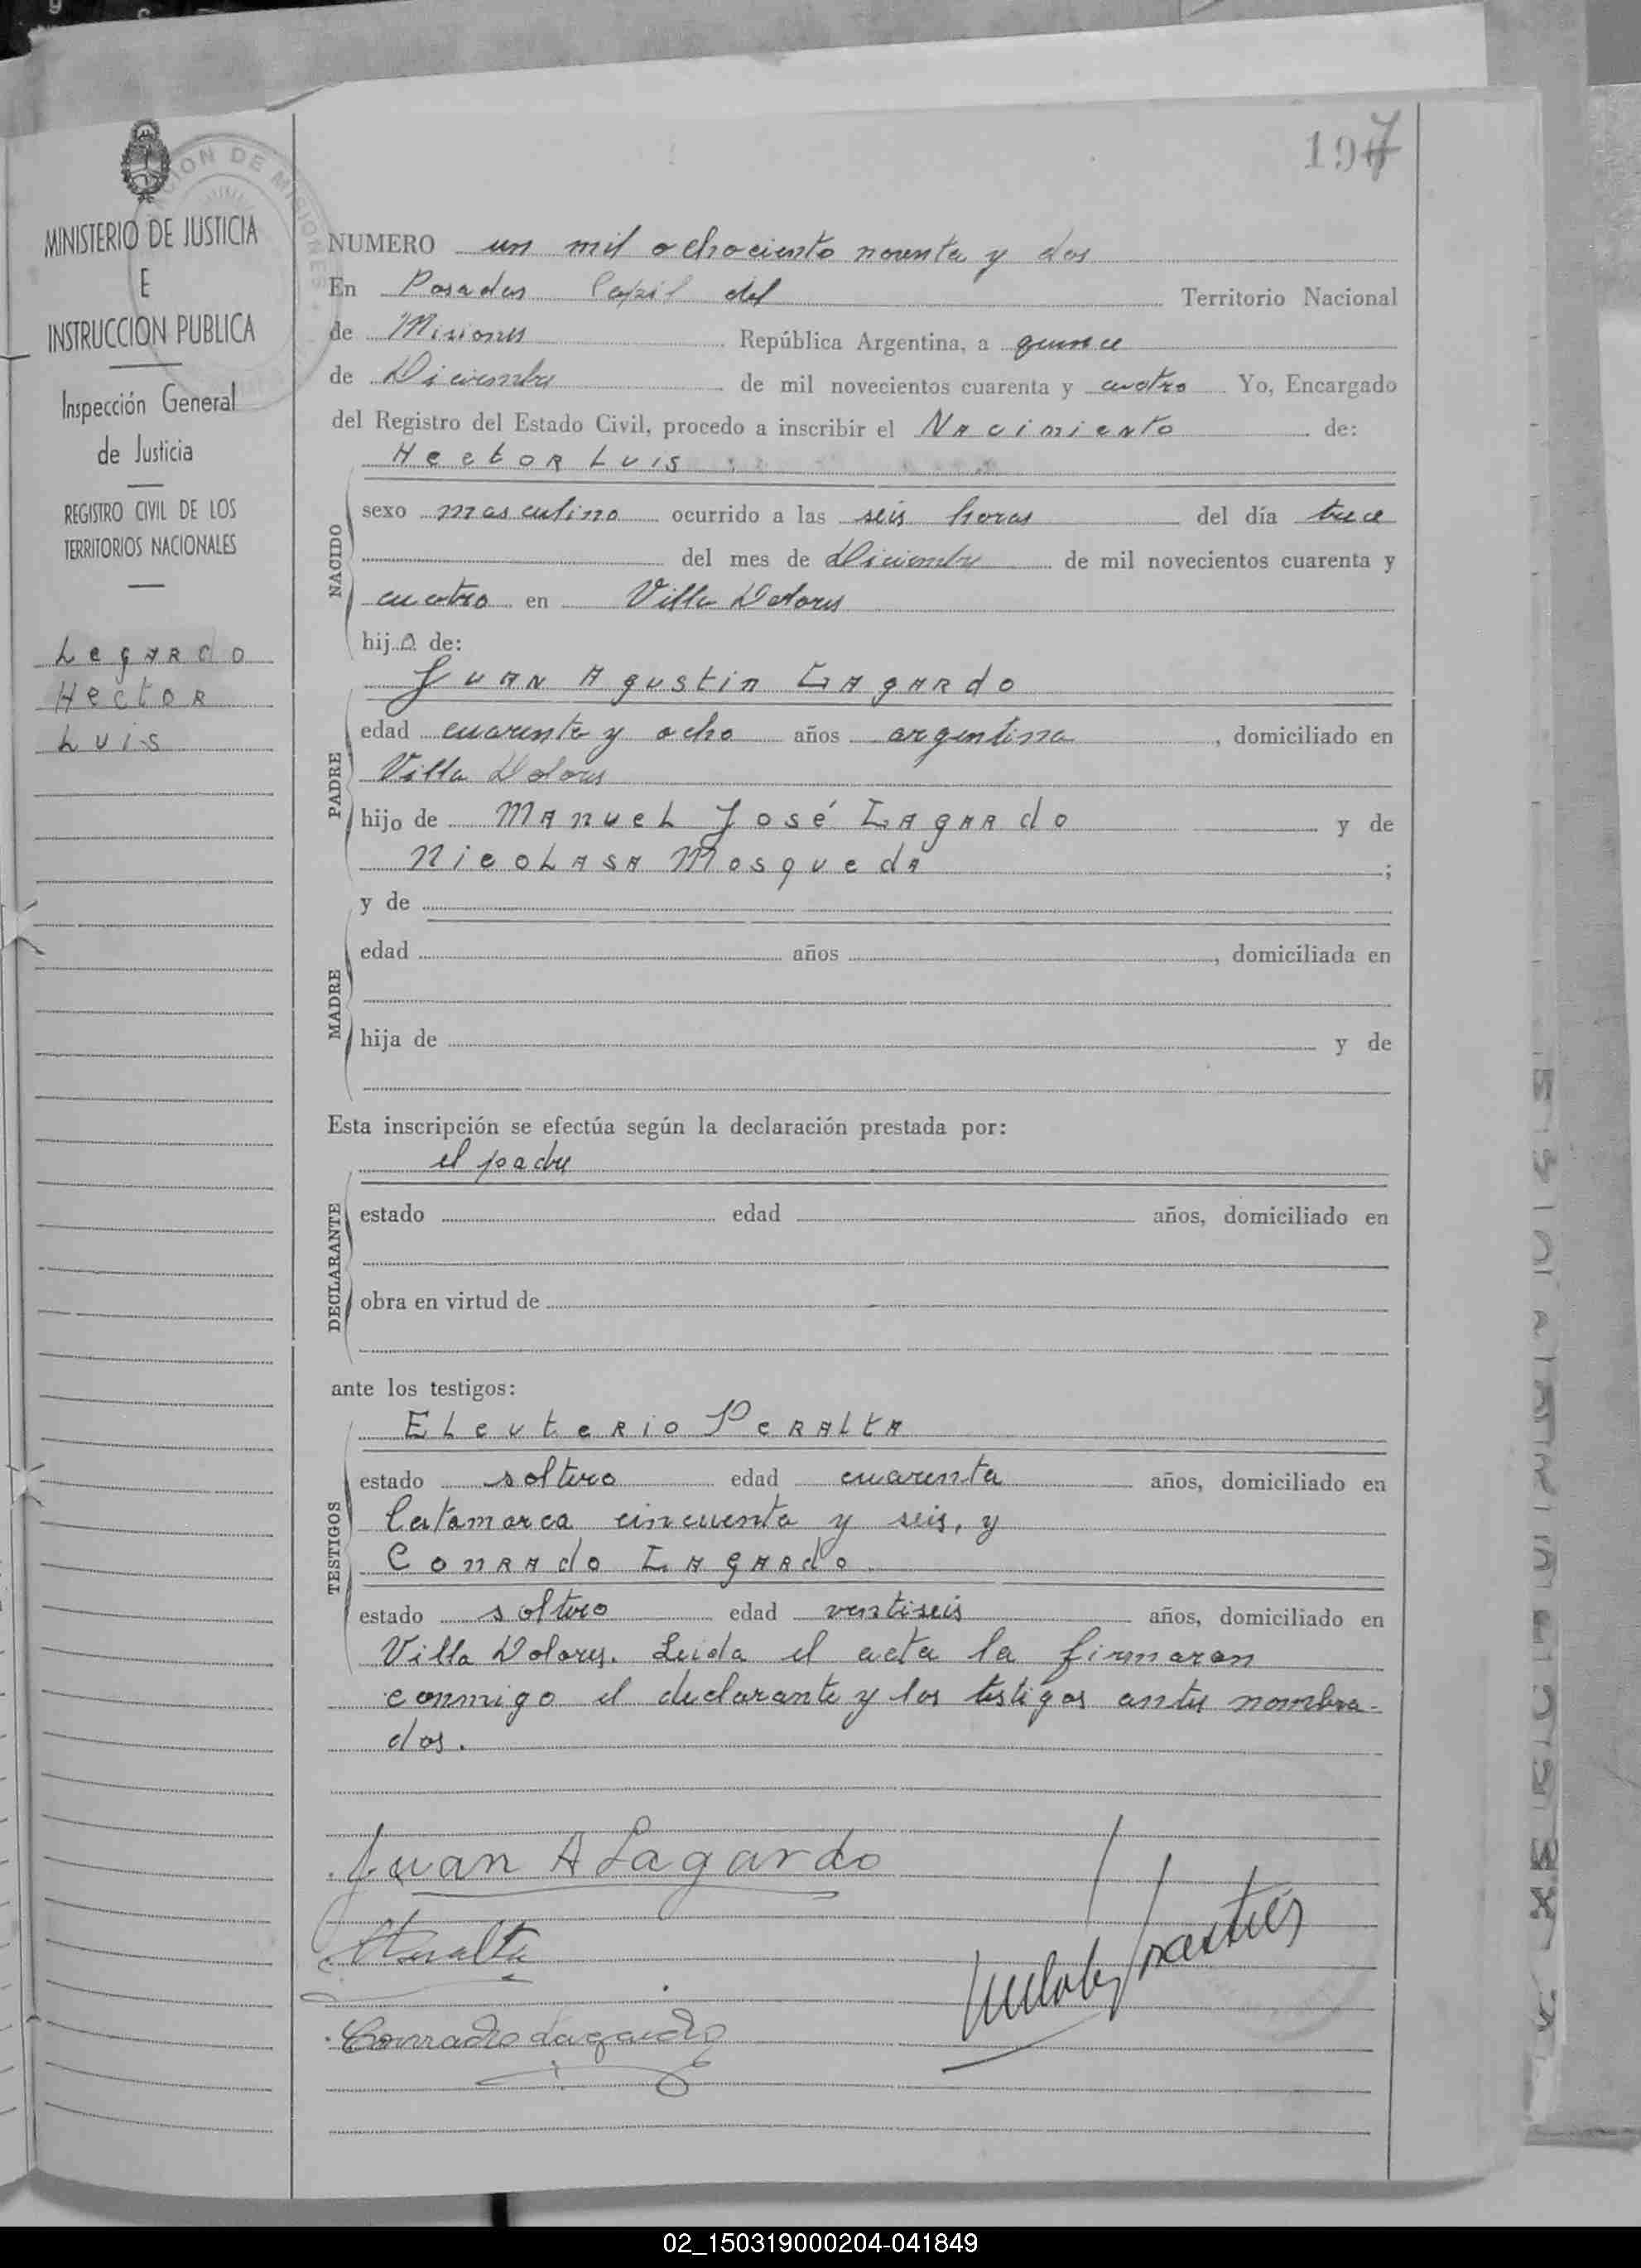 197
MINISTERIO DE JUSTICIA
E
INSTRUCCION PUBLICA
Inspección General
de Justicia
REGISTRO CIVIL DE LOS
TERRITORIOS NACIONALES
Legardo
Hector
Luis
NUMERO un mil ochociento noventa y dos
En Posadas Capil del Territorio Nacional
de Misiones República Argentina, a quince
de Diciembre de mil novecientos cuarenta y cuatro Yo, Encargado
del Registro del Estado Civil, procedo a inscribir el Nacimiento de:
Hector Luis
NACIDO
sexo masculino ocurrido a las seis horas del día trece
del mes de Diciembre de mil novecientos cuarenta y
cuatro en Villa Dolores
hijo de:
Juan Agustin Lagardo
PADRE
edad cuarenta y ocho años argentina, domiciliado en
Villa Dolores
hijo de Manuel José Lagardo y de
Nicolasa Mosqueda ;
y de
MADRE
edad años , domiciliada en
hija de y de
Esta inscripción se efectúa según la declaración prestada por:
el padre
DECLARANTE
estado edad años, domiciliado en
obra en virtud de
ante los testigos:
Eleuterio Peralta
TESTIGOS
estado soltero edad cuarenta años, domiciliado en
Catamarca cincuenta y seis, y
Conrado Lagardo
estado soltero edad ventiseis años, domiciliado en
Villa Dolores. Leida el acta la firmaron
conmigo el declarante y los testigos antes nombra-
dos.
Juan A Lagardo
Peralta
Conrado Lagardo
02_150319000204-041849